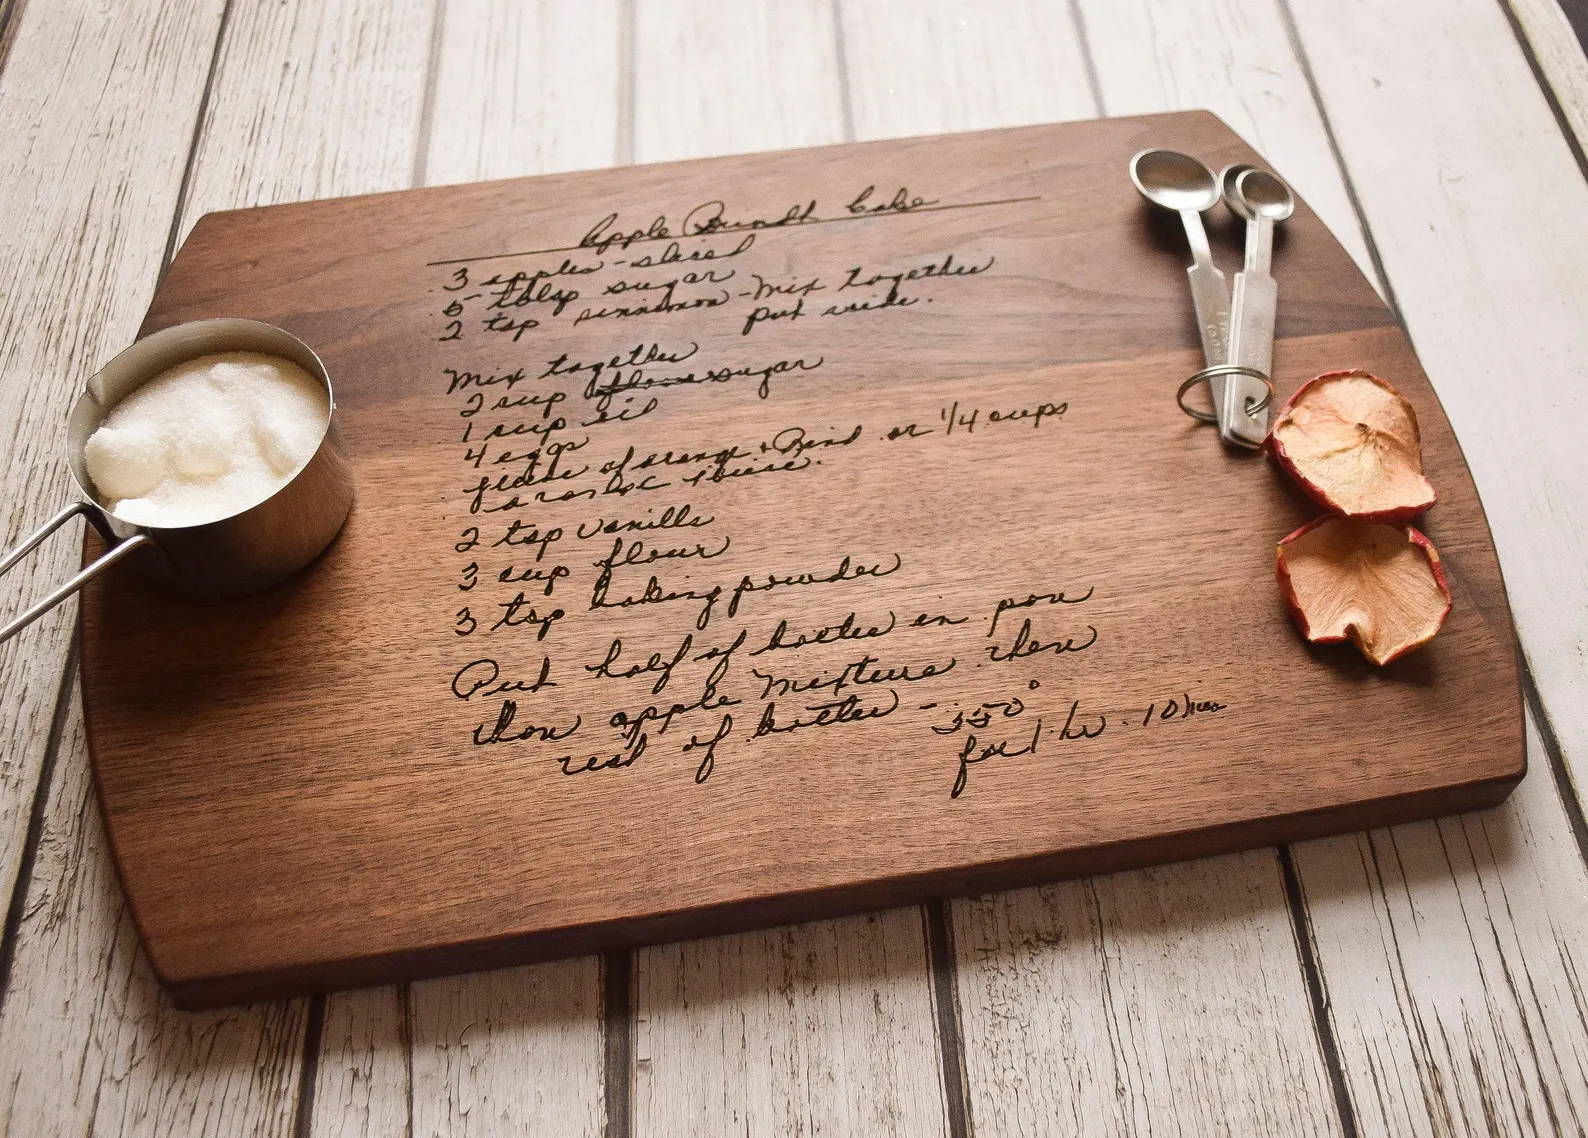 Apple Bundt Cake
3 apples - sliced
5 tblsp sugar
2 tsp cinnamon - Mix together
put aside.
Mix together
2 cup flour sugar
1 cup oil
4 eggs
juice of orange + Rind or 1/4 cups
orange juice.
2 tsp vanilla
3 cup flour
3 tsp baking powder
Put half of batter in pan
then apple mixture then
rest of batter - 350°
for 1 hr. 10